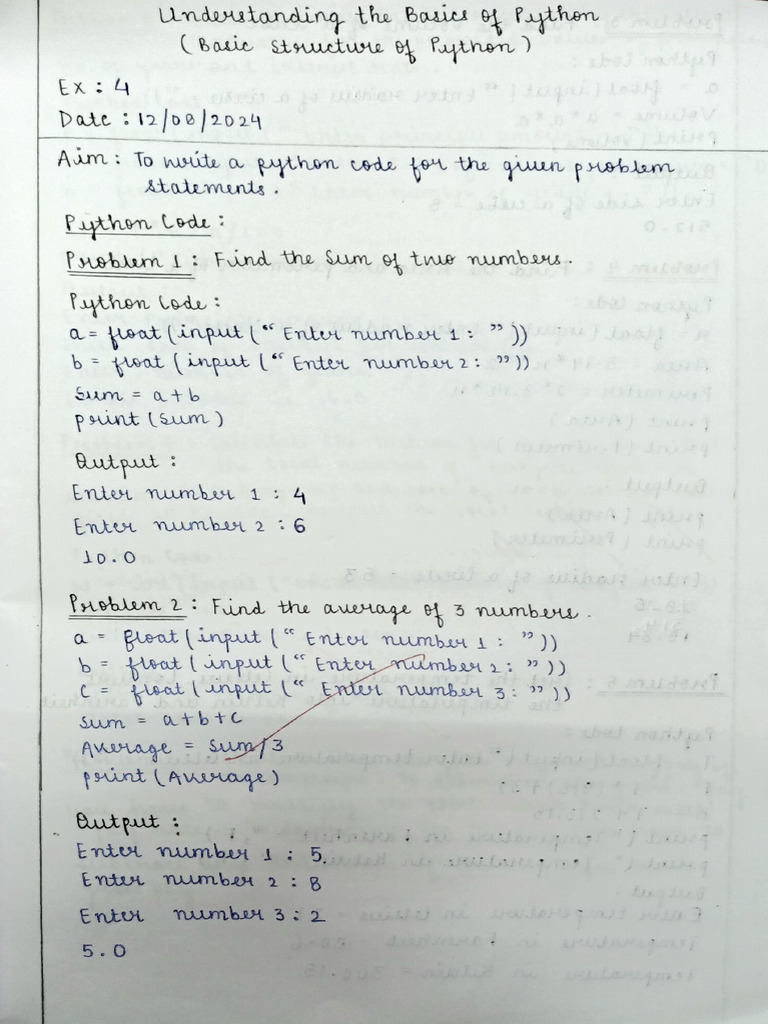 Understanding the Basics of Python
(Basic Structure of Python)
Ex : 4
Date : 12/08/2024
Aim : To write a python code for the given problem
statements.
Python Code :
Problem 1 : Find the Sum of two numbers.
Python Code :
a = float(input(“ Enter number 1 : ”))
b = float (input (“ Enter number 2 : ”))
Sum = a+b
print (Sum)
Output :
Enter number 1 : 4
Enter number 2 : 6
10.0
Problem 2 : Find the average of 3 numbers.
a = float(input(“ Enter number 1 : ”))
b = float(input (“ Enter number 2 : ”))
c = float (input (“ Enter number 3 : ”))
Sum = a+b+c
Average = Sum/3
print (Average)
Output :
Enter number 1 : 5
Enter number 2 : 8
Enter number 3 : 2
5.0